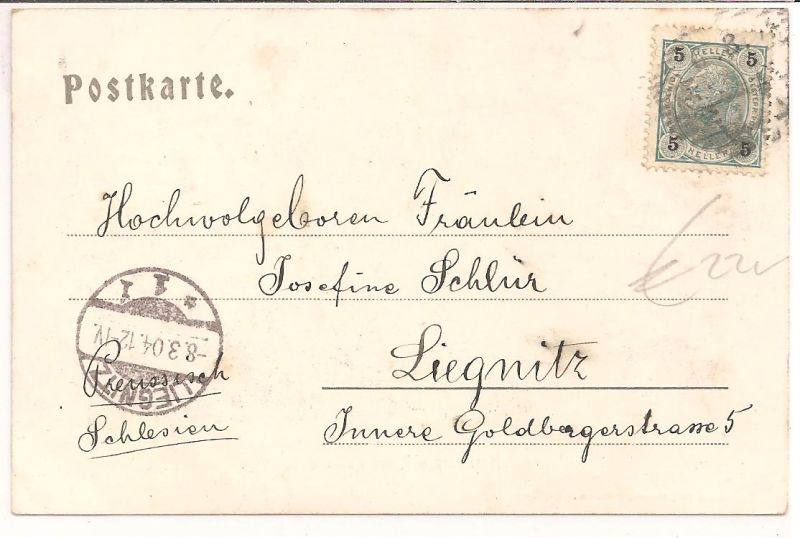 Postkarte.
5 HELLER 5
5 HELLER 5
Hochwolgeboren Fräulein
Josefine Schlür
Liegnitz
Innere Goldbergerstrasse 5
Preussisch
Schlesien
LIEGNITZ
-8.3.04.12-1V.
* 1 1